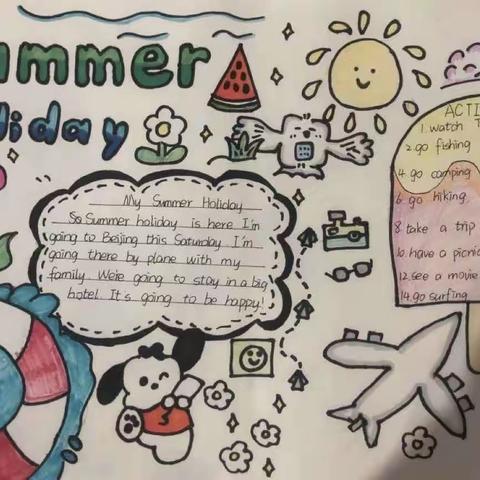 ummer
liday
My Summer Holiday
So Summer holiday is here. I'm
going to Beijing this Saturday. I'm
going there by plane with my
family. We're going to stay in a big
hotel. It's going to be happy!
ACTI
1. watch T
2. go fishing
4. go camping
6. go hiking
8. take a trip
10. have a picnic
12. see a movie
14. go surfing